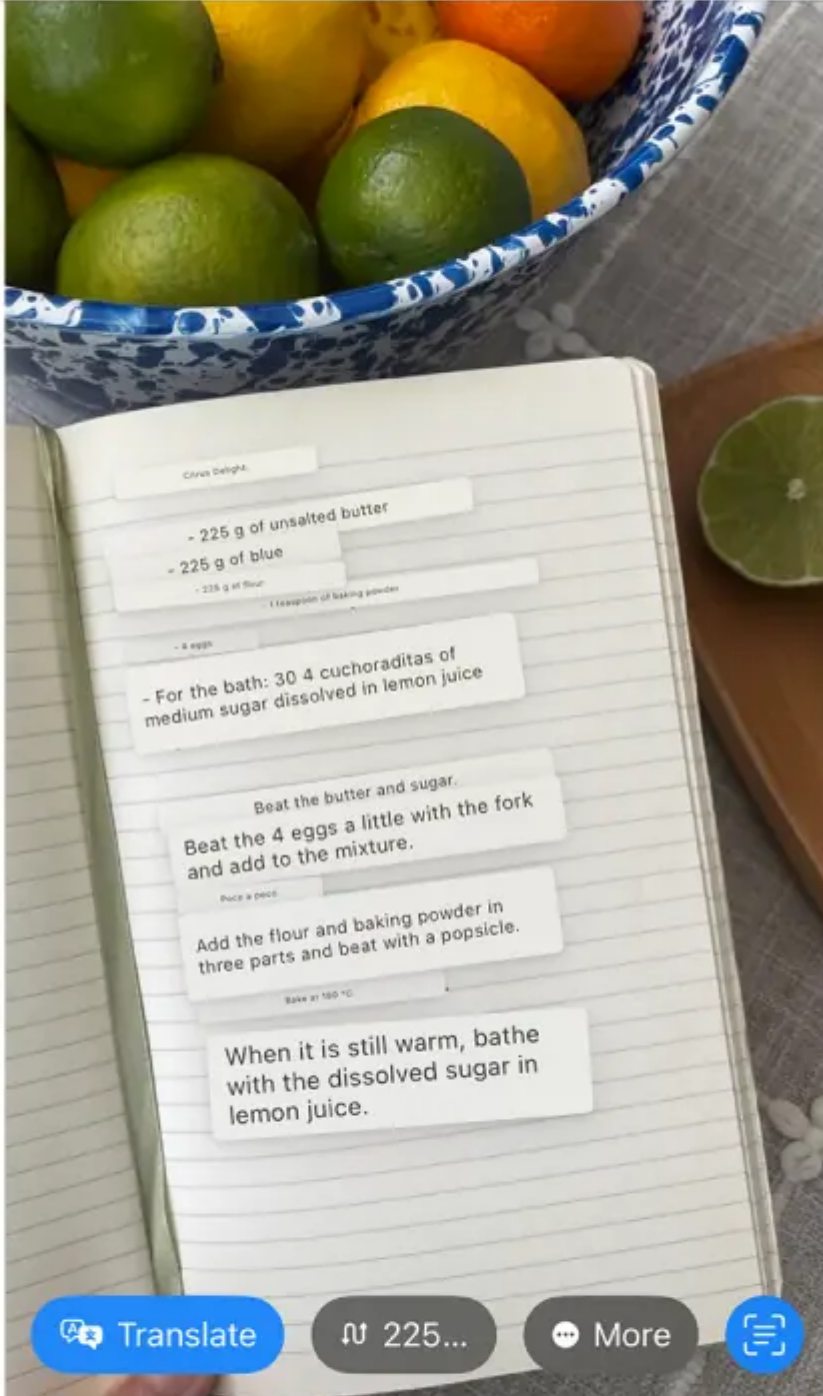 Citrus Delight.
- 225 g of unsalted butter
- 225 g of blue
- 225 g of flour
1 teaspoon of baking powder
- 4 eggs
- For the bath: 30 4 cuchoraditas of
medium sugar dissolved in lemon juice
Beat the butter and sugar.
Beat the 4 eggs a little with the fork
and add to the mixture.
Poco a poco
Add the flour and baking powder in
three parts and beat with a popsicle.
Bake at 180 °C
When it is still warm, bathe
with the dissolved sugar in
lemon juice.
Translate
225...
More